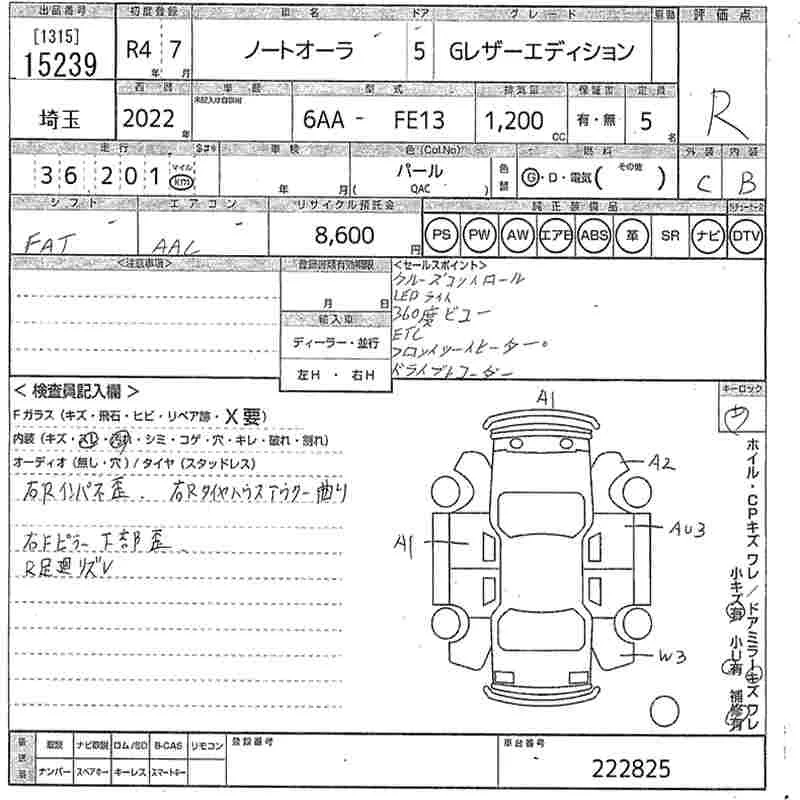 出品番号 初度登録 車名 ドア グレード 車歴 評価点
[1315]
15239 R4 年 7 月 ノートオーラ 5 Gレザーエディション R
西暦 車歴 型式 排気量 保証書 定員
未記入は自家用
埼玉 2022 年 6AA - FE13 1,200 CC 有・無 5 名
走行 車検 色 (Col.No) 燃料 外装 内装
36 201 マイル Km 年 月 パール ( QAC ) 色替 G・D・電気 ( その他 ) C B
シフト エアコン リサイクル預託金 純正装備品
FAT AAC 8,600 円 PS PW AW エアB ABS 革 SR ナビ DTV
<注意事項> 登録書類有効期限 <セールスポイント>
月 日
クルーズコントロール
LEDライト
360度ビュー
ETC
フロントシートヒーター。
ドライブレコーダー
輸入車
ディーラー・並行
左H ・ 右H
< 検査員記入欄 > キーロック
Fガラス (キズ・飛石・ヒビ・リペア跡・X要)
内装 (キズ・スレ・汚れ・シミ・コゲ・穴・キレ・破れ・割れ)
オーディオ (無し・穴) / タイヤ (スタッドレス)
右Rインパネ歪、右Rタイヤハウスアウター曲り
右Fピラー下部歪、
R足廻リズレ
A1
A2
A1
AU3
W3
ホイル・CPキズワレ/ドアミラーキズワレ
小キズ有 小U有 補修有
取説 ナビ取説 ロム/SD B-CAS リモコン 登録番号 車台番号
ナンバー スペアキー キーレス スマートキー
222825